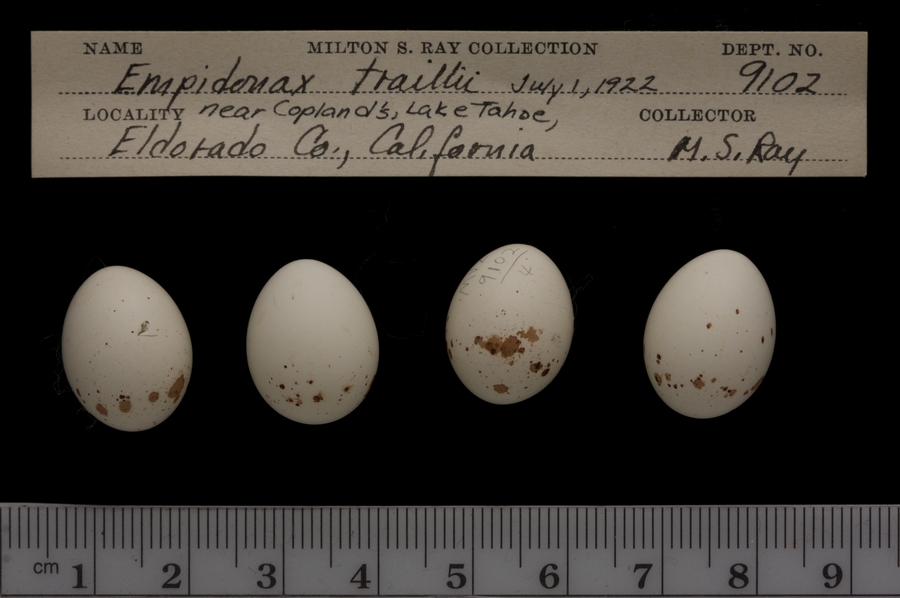 NAME MILTON S. RAY COLLECTION DEPT. NO.
Empidonax traillii July 1, 1922 9102
LOCALITY near Copland's, Lake Tahoe, COLLECTOR
Eldorado Co., California M. S. Ray
9102/4
cm 1 2 3 4 5 6 7 8 9